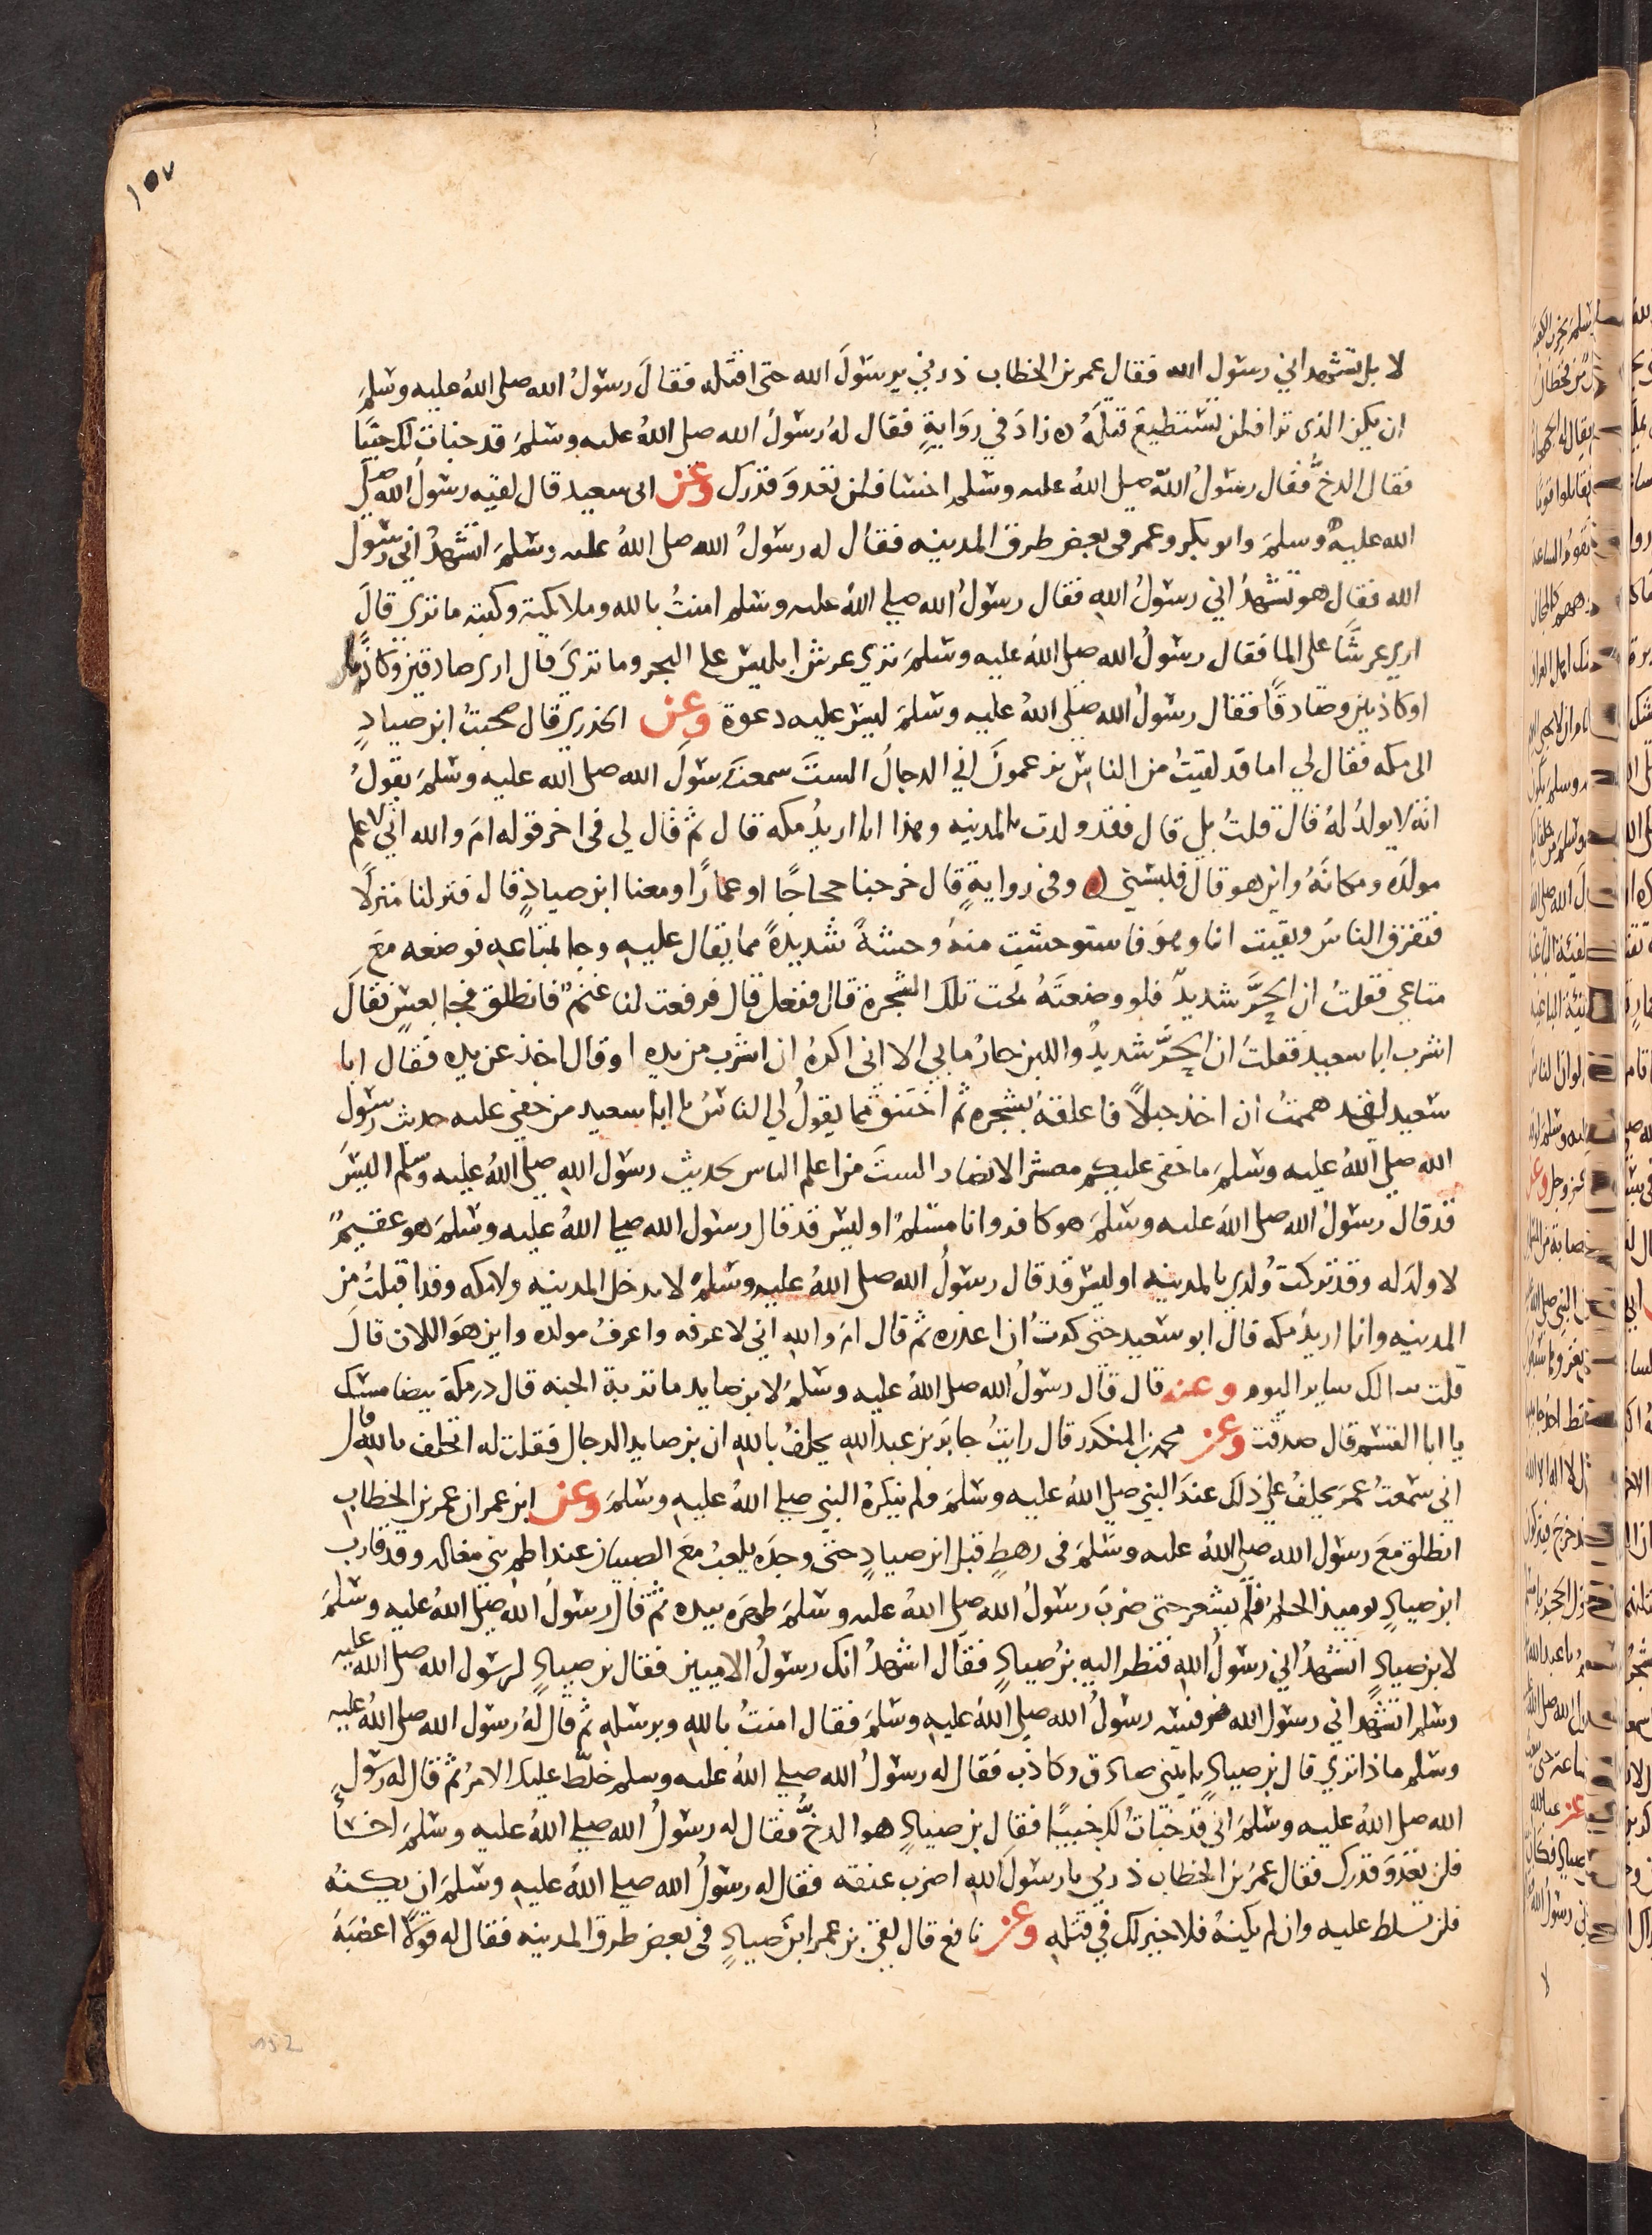 ١٥٧
لا بل تشهد اني رسول الله فقال عمر بن الخطاب ذرني يرسول الله حتى اقتله فقال رسول الله صلى الله عليه وسلم
ان يكن الذى ترا فلن تستطيع قتله ه زاد في رواية فقال له رسول الله صلى الله عليه وسلم قد خبات لك خبيا
فقال الدخ فقال رسول الله صلى الله عليه وسلم اخسا فلن تعدو قدرك وعن ابى سعيد قال لقيه رسول الله صلى
الله عليه وسلم وابو بكر وعمر فى بعض طرق المدينه فقال له رسول الله صلى الله عليه وسلم اتشهد انى رسول
الله فقال هو تشهد اني رسول الله فقال رسول الله صلى الله عليه وسلم امنت بالله وملايكته وكتبه ما ترى قال
ارى عرشا على الما فقال رسول الله صلى الله عليه وسلم ترى عرش ابليس على البحر وما ترى قال ارى صادقين وكاذبا
او كاذبين وصادقا فقال رسول الله صلى الله عليه وسلم لبس عليه دعوة وعن الخدري قال صحبت ابن صياد
الى مكه فقال لي اما قد لقيت من الناس يزعمون اني الدجال الست سمعت رسول الله صلى الله عليه وسلم يقول
انه لا يولد له قال قلت بلى قال فقد ولدت بالمدينه وهذا انا اريد مكه قال ثم قال لي فى اخر قوله ام والله اني لاعلم
مولده ومكانه واين هو قال فلبسني ه وفى رواية قال خرجنا حجاجا او عمارا ومعنا ابن صياد قال فنزلنا منزلا
فتفرق الناس وبقيت انا وهو فاستوحشت منه وحشة شديدة مما يقال عليه وجا بمتاعه فوضعه مع
متاعي فقلت ان الحر شديد فلو وضعته تحت تلك الشجرة قال ففعل قال فرفعت لنا غنم فانطلق فجا بعس فقال
اشرب ابا سعيد فقلت ان الحر شديد واللبن حار ما بي الا انى اكره ان اشرب من يده او قال اخذ عن يده فقال ابا
سعيد لقد هممت ان اخذ حبلا فاعلقه بشجره ثم اختنق مما يقول لي الناس يا ابا سعيد من خفي عليه حديث رسول
الله صلى الله عليه وسلم ما خفى عليكم معشر الانصار الست من اعلم الناس بحديث رسول الله صلى الله عليه وسلم اليس
قد قال رسول الله صلى الله عليه وسلم هو كافر وانا مسلم او ليس قد قال رسول الله صلى الله عليه وسلم هو عقيم
لا ولد له وقد تركت ولدي بالمدينه او ليس قد قال رسول الله صلى الله عليه وسلم لا يدخل المدينه ولا مكه وقد اقبلت من
المدينه وانا اريد مكه قال ابو سعيد حتى كدت ان اعذره ثم قال ام والله اني لاعرفه واعرف مولده واين هو اللان قال
قلت تبا لك ساير اليوم وعنه قال قال رسول الله صلى الله عليه وسلم لابن صايد ما تربة الجنه قال درمكة بيضا مسك
يا ابا القسم قال صدقت وعن محمد بن المنكدر قال رايت جابر بن عبد الله يحلف بالله ان بن صايد الدجال فقلت له اتحلف بالله قال
اني سمعت عمر يحلف على ذلك عند النبي صلى الله عليه وسلم فلم ينكره النبي صلى الله عليه وسلم وعن ابن عمر ان عمر بن الخطاب
انطلق مع رسول الله صلى الله عليه وسلم فى رهط قبل ابن صياد حتى وجده يلعب مع الصبيان عند اطم بني مغاله وقد قارب
ابن صياد يوميذ الحلم فلم يشعر حتى ضرب رسول الله صلى الله عليه وسلم ظهره بيده ثم قال رسول الله صلى الله عليه وسلم
لابن صياد اتشهد اني رسول الله فنظر اليه بن صياد فقال اشهد انك رسول الاميين فقال بن صياد لرسول الله صلى الله عليه
وسلم اتشهد اني رسول الله فرفضه رسول الله صلى الله عليه وسلم فقال امنت بالله وبرسله ثم قال له رسول الله صلى الله عليه
وسلم ماذا ترى قال بن صياد ياتيني صادق وكاذب فقال له رسول الله صلى الله عليه وسلم خلط عليك الامر ثم قال له رسول
الله صلى الله عليه وسلم انى قد خبات لك خبيا فقال بن صياد هو الدخ فقال له رسول الله صلى الله عليه وسلم اخسا
فلن تعدو قدرك فقال عمر بن الخطاب ذرني يا رسول الله اضرب عنقه فقال له رسول الله صلى الله عليه وسلم ان يكنه
فلن تسلط عليه وان لم يكنه فلا خير لك في قتله وعن نافع قال لقي بن عمر ابن صياد فى بعض طرق المدينه فقال له قولا اغضبه